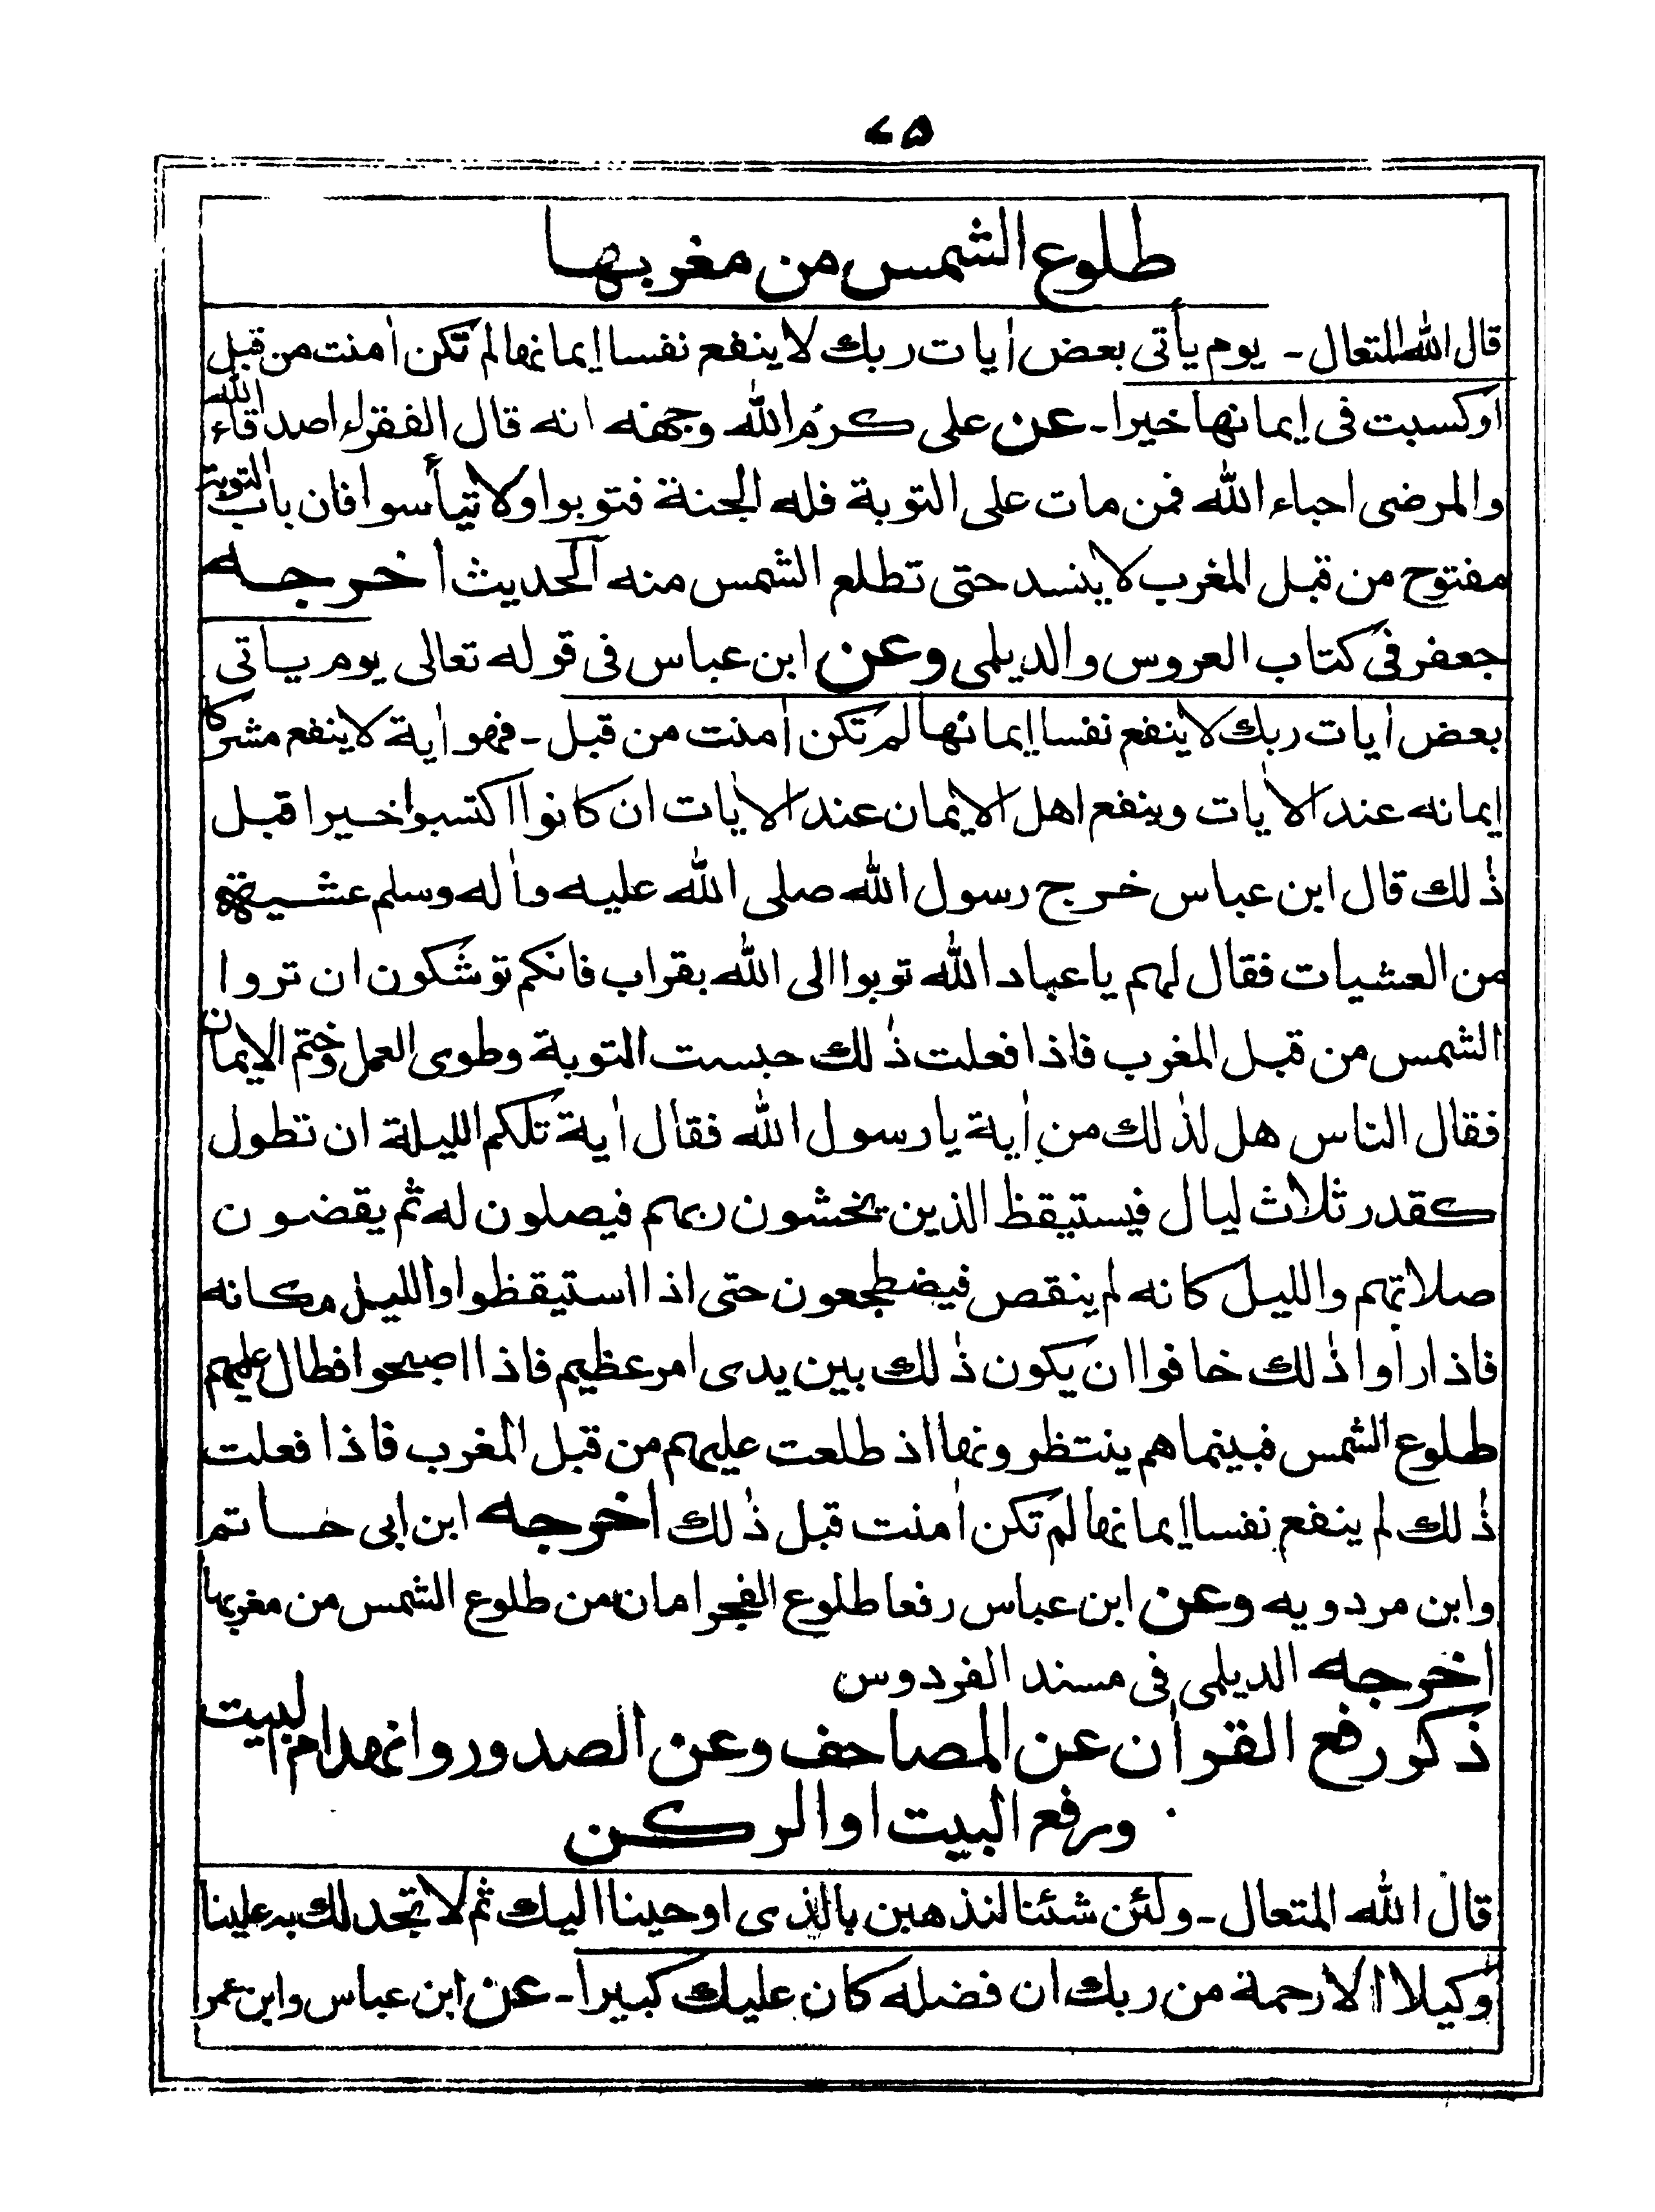 ٧٥
طلوع الشمس من مغربها
قال الله المتعال ـ يوم يأتى بعض اٰيات ربك لا ينفع نفسا إيمانها لم تكن اٰمنت من قبل
أو كسبت فى إيمانها خيرا ـ عن على كرم الله وجهه انه قال الفقراء اصدقاء الله
والمرضى احباء الله فمن مات على التوبة فله الجنة فتوبوا ولا تيأسوا فان باب التوبة
مفتوح من قبل المغرب لا ينسد حتى تطلع الشمس منه الحديث أخرجه
جعفر فى كتاب العروس والديلمى وعن ابن عباس فى قوله تعالى يوم ياتى
بعض اٰيات ربك لا ينفع نفسا إيمانها لم تكن اٰمنت من قبل ـ فهو اٰية لا ينفع مشركا
إيمانه عند الاٰيات وينفع اهل الايمان عند الاٰيات ان كانوا اكتسبوا خيرا قبل
ذٰلك قال ابن عباس خرج رسول الله صلى الله عليه واٰله وسلم عشية
من العشيات فقال لهم يا عباد الله توبوا الى الله بقراب فانكم توشكون ان تروا
الشمس من قبل المغرب فاذا فعلت ذٰلك حبست التوبة وطوى العمل وختم الايمان
فقال الناس هل لذٰلك من اٰية يا رسول الله فقال اٰية تلكم الليلة ان تطول
كقدر ثلاث ليال فيستيقظ الذين يخشون ربهم فيصلون له ثم يقضون
صلاتهم والليل كانه لم ينقص فيضطجعون حتى اذا استيقظوا والليل مكانه
فاذا رأوا ذٰلك خافوا ان يكون ذٰلك بين يدى امر عظيم فاذا اصبحوا فطال عليهم
طلوع الشمس فبينما هم ينتظرونها اذ طلعت عليهم من قبل المغرب فاذا فعلت
ذٰلك لم ينفع نفسا إيمانها لم تكن اٰمنت قبل ذٰلك اخرجه ابن ابى حاتم
وابن مردويه وعن ابن عباس رفعا طلوع الفجر امان من طلوع الشمس من مغربها
اخرجه الديلمى فى مسند الفردوس
ذكر رفع القراٰن عن المصاحف وعن الصدور وانهدام البيت
ورفع البيت او الركن
قال الله المتعال ـ ولئن شئنا لنذهبن بالذى اوحينا اليك ثم لا تجد لك به علينا
وكيلا الا رحمة من ربك ان فضله كان عليك كبيرا ـ عن ابن عباس وابن عمر